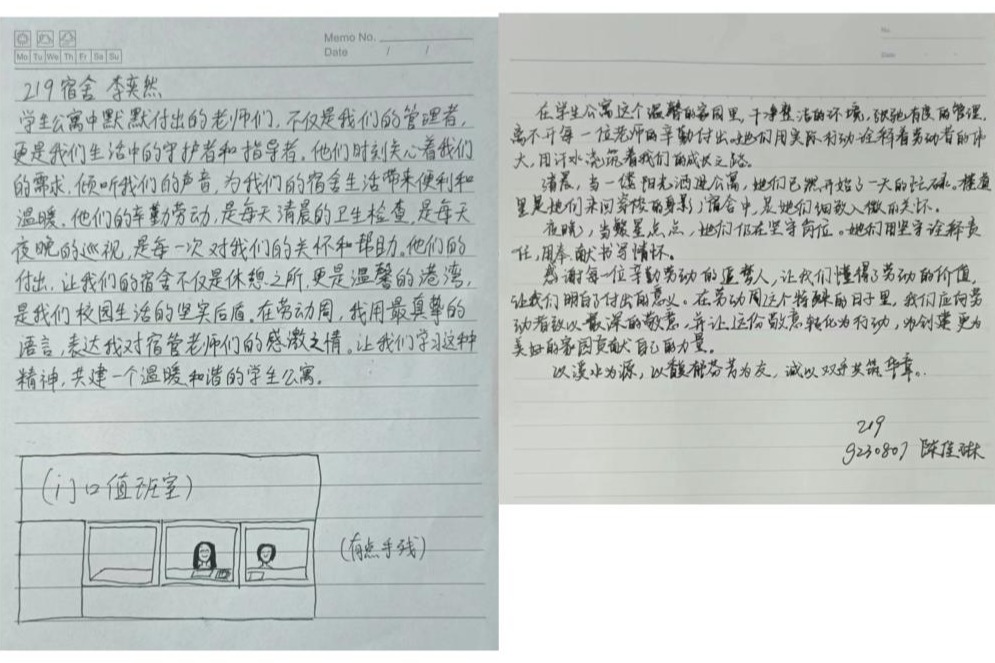 Memo No.
Date / /
Mo Tu We Th Fr Sa Su
219宿舍 李奕然
学生公寓中默默付出的老师们,不仅是我们的管理者,
更是我们生活中的守护者和指导者。他们时刻关心着我们
的需求,倾听我们的声音,为我们的宿舍生活带来便利和
温暖。他们的辛勤劳动,是每天清晨的卫生检查,是每天
夜晚的巡视,是每一次对我们的关怀和帮助。他们的
付出,让我们的宿舍不仅是休憩之所,更是温馨的港湾,
是我们校园生活的坚实后盾。在劳动周,我用最真挚的
语言,表达我对宿管老师们的感激之情。让我们学习这种
精神,共建一个温暖和谐的学生公寓。
(门口值班室)
(有点手残)
No.
Date
在学生公寓这个温馨的家园里,干净整洁的环境,张弛有度的管理,
离不开每一位老师的辛勤付出。她们用实际行动诠释着劳动者的伟
大,用汗水浇筑着我们的成长之路。
清晨,当一缕阳光洒进公寓,她们已然开始了一天的忙碌。楼道
里是她们来回穿梭的身影,宿舍中,是她们细致入微的关怀。
夜晚,当繁星点点,她们仍在坚守岗位。她们用坚守诠释责
任,用奉献书写情怀。
感谢每一位辛勤劳动的追梦人,让我们懂得了劳动的价值,
让我们明白了付出的意义。在劳动周这个特殊的日子里,我们应向劳
动者致以最深的敬意,并让这份敬意转化为行动,为创建更为
美好的家园贡献自己的力量。
以溪水为源,以馥郁芬芳为友,诚以双手共筑华章。
219
9230807 陈佳琳